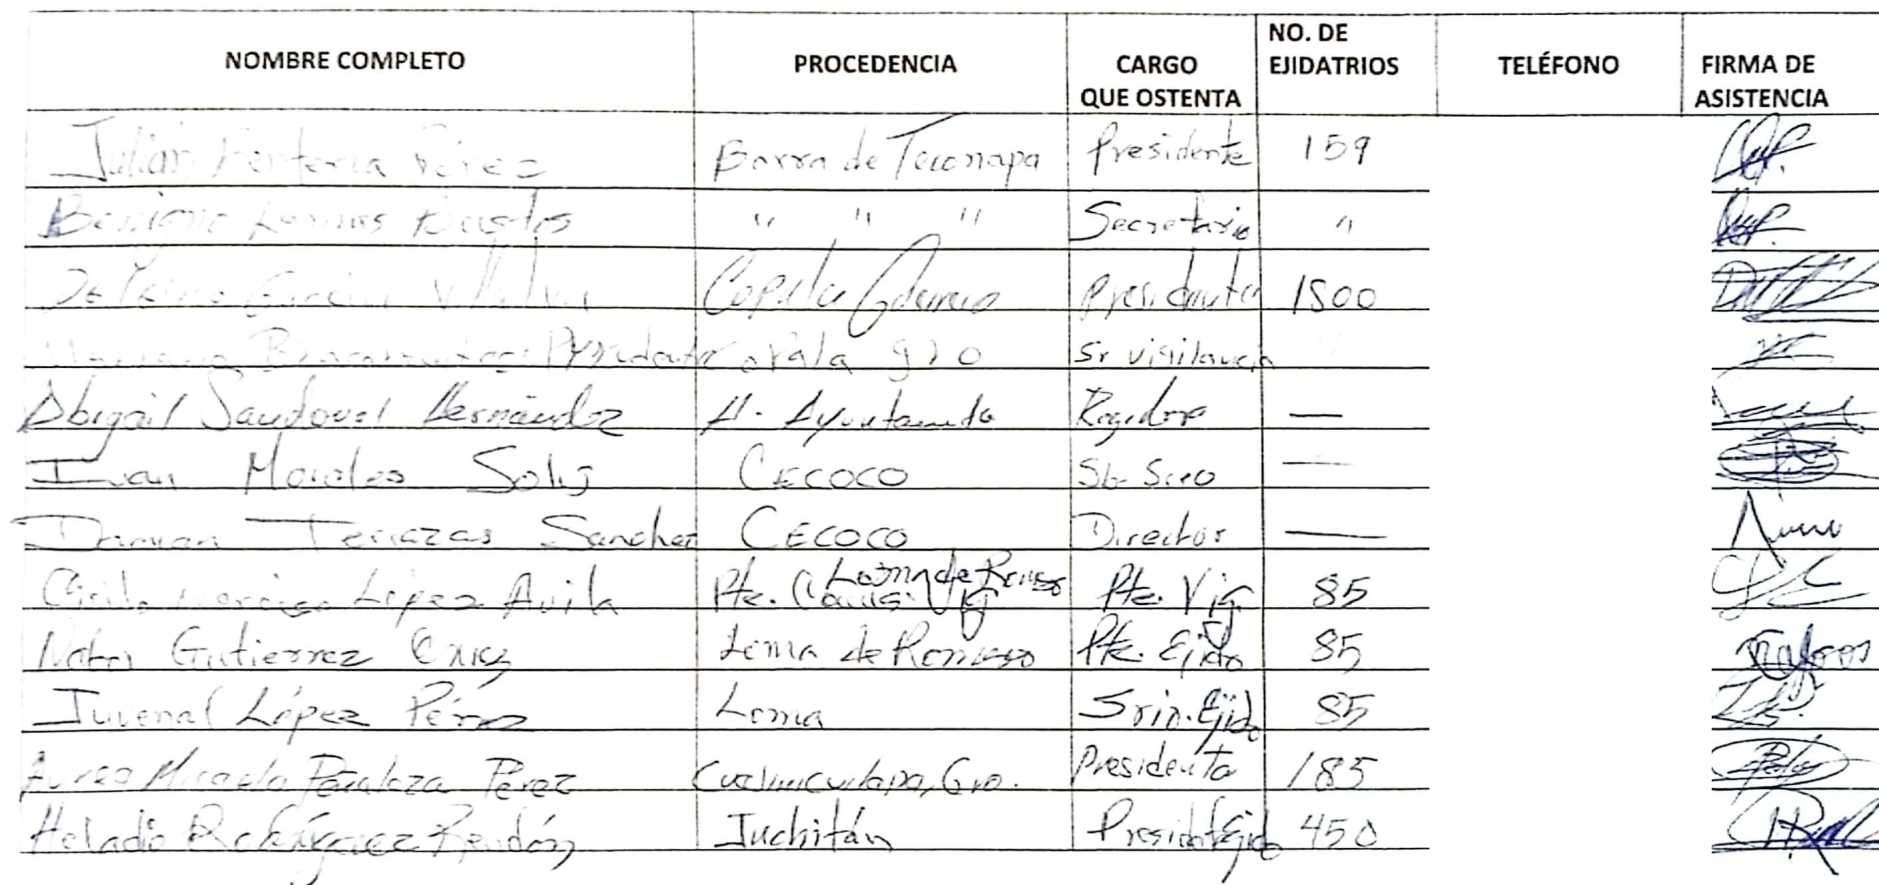 NOMBRE COMPLETO PROCEDENCIA CARGO QUE OSTENTA NO. DE EJIDATRIOS TELÉFONO FIRMA DE ASISTENCIA
Julian Renteria Pérez Barra de Tecomapa Presidente 159
Benigno Lemus Bustos " " " Secretario "
García Villalva Copala Presidente
Presidente gro Sr vigilancia
Abigail Sandoval Hernández H. Ayuntamiento Regidora —
Ivan Morales Solis CECOCO Sb Scro —
Damian Terrazas Sanchez CECOCO Director —
Cirilo Narciso López Avila Pte. Comis. Vig Loma de Romero Pte. Vig. 85
Gutierrez Cruz Loma de Romero Pte. Ejido 85
Juvenal López Pérez Loma Srio. Ejido 85
Aurea Micaela Peñaloza Pérez Cuajinicuilapa, Gro. Presidenta 185
Heladio Rodríguez Rendón Juchitán President Ejido 450